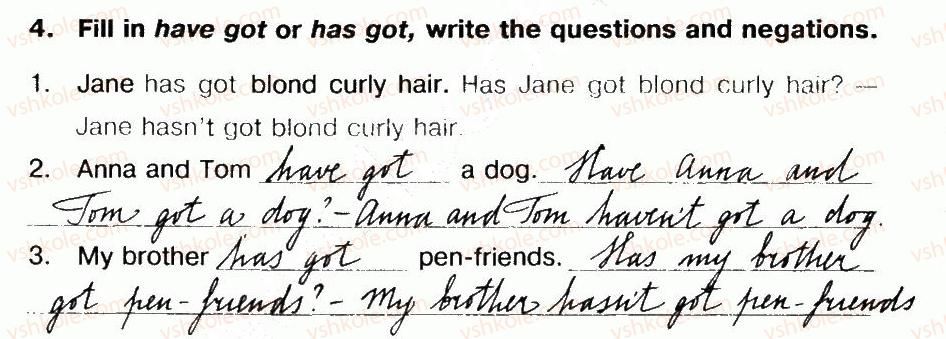 4. Fill in have got or has got, write the questions and negations.
1. Jane has got blond curly hair. Has Jane got blond curly hair? —
Jane hasn't got blond curly hair.
2. Anna and Tom have got a dog. Have Anna and
Tom got a dog? – Anna and Tom haven't got a dog.
3. My brother has got pen-friends. Has my brother
got pen-friends? – My brother hasn't got pen-friends